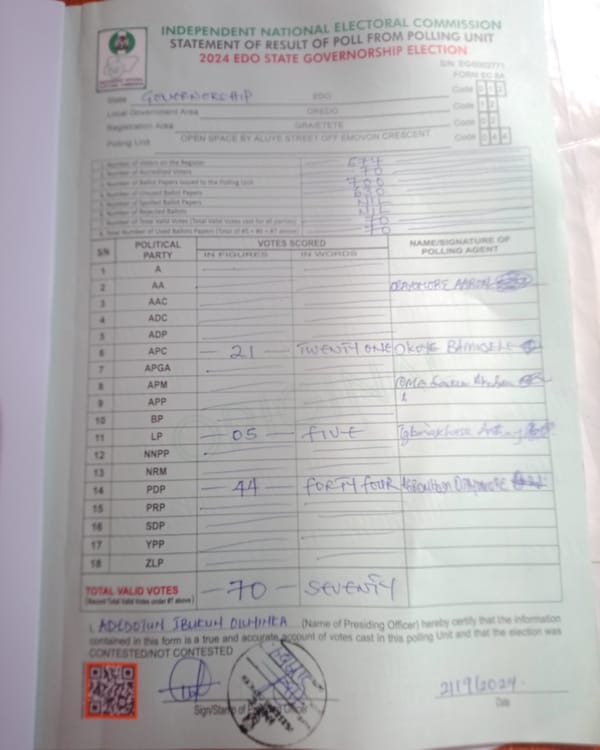 INDEPENDENT NATIONAL ELECTORAL COMMISSION
STATEMENT OF RESULT OF POLL FROM POLLING UNIT
2024 EDO STATE GOVERNORSHIP ELECTION
FORM EC 8A
State GOVERNORSHIP EDO Code 0 1 2
Local Government Area OREDO Code 1 2
Registration Area GRA/ETETE Code 0 2
Polling Unit OPEN SPACE BY ALUYE STREET OFF EMOVON CRESCENT Code 0 4 4
1 Number of Voters on the Register
2 Number of Accredited Voters 70
3 Number of Ballot Papers Issued to the Polling Unit 700
4 Number of Unused Ballot Papers 630
5 Number of Spoiled Ballot Papers NIL
6 Number of Rejected Ballots NIL
7 Number of Total Valid Votes (Total Valid Votes cast for all parties) 70
8 Total Number of Used Ballots Papers (Total of #5 + #6 + #7 above) 70
S/N POLITICAL PARTY VOTES SCORED NAME/SIGNATURE OF POLLING AGENT
IN FIGURES IN WORDS
1 A
2 AA AARON
3 AAC
4 ADC
5 ADP
6 APC 21 TWENTY ONE OKOYE BAMIDELE
7 APGA
8 APM
9 APP
10 BP
11 LP 05 FIVE
12 NNPP
13 NRM
14 PDP 44 FORTY FOUR
15 PRP
16 SDP
17 YPP
18 ZLP
TOTAL VALID VOTES 70 SEVENTY
(Record Total Valid Votes under #7 above)
I, ADEDOTUN IBUKUN OLUYINKA (Name of Presiding Officer) hereby certify that the information
contained in this form is a true and accurate account of votes cast in this polling Unit and that the election was
CONTESTED/NOT CONTESTED
21/9/2024
Sign/Stamp of Presiding Officer Date